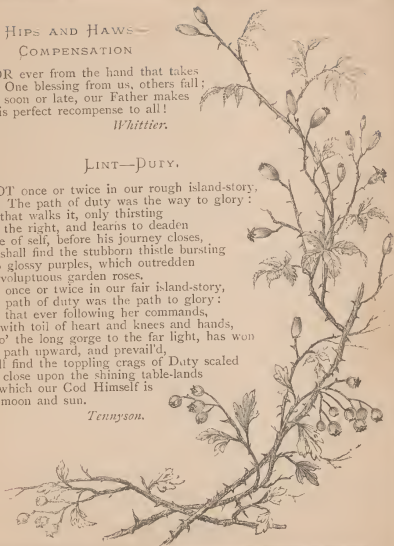 HIPS AND HAWS
COMPENSATION
OR ever from the hand that takes
One blessing from us, others fall;
soon or late, our Father makes
is perfect recompense to all!
Whittier.
LINT—DUTY.
OT once or twice in our rough island-story,
The path of duty was the way to glory:
that walks it, only thirsting
the right, and learns to deaden
e of self, before his journey closes,
shall find the stubborn thistle bursting
glossy purples, which outredden
voluptuous garden roses.
once or twice in our fair island-story,
path of duty was the path to glory:
that ever following her commands,
with toil of heart and knees and hands,
o' the long gorge to the far light, has won
path upward, and prevail'd,
ll find the toppling crags of Duty scaled
close upon the shining table-lands
which our God Himself is
moon and sun.
Tennyson.